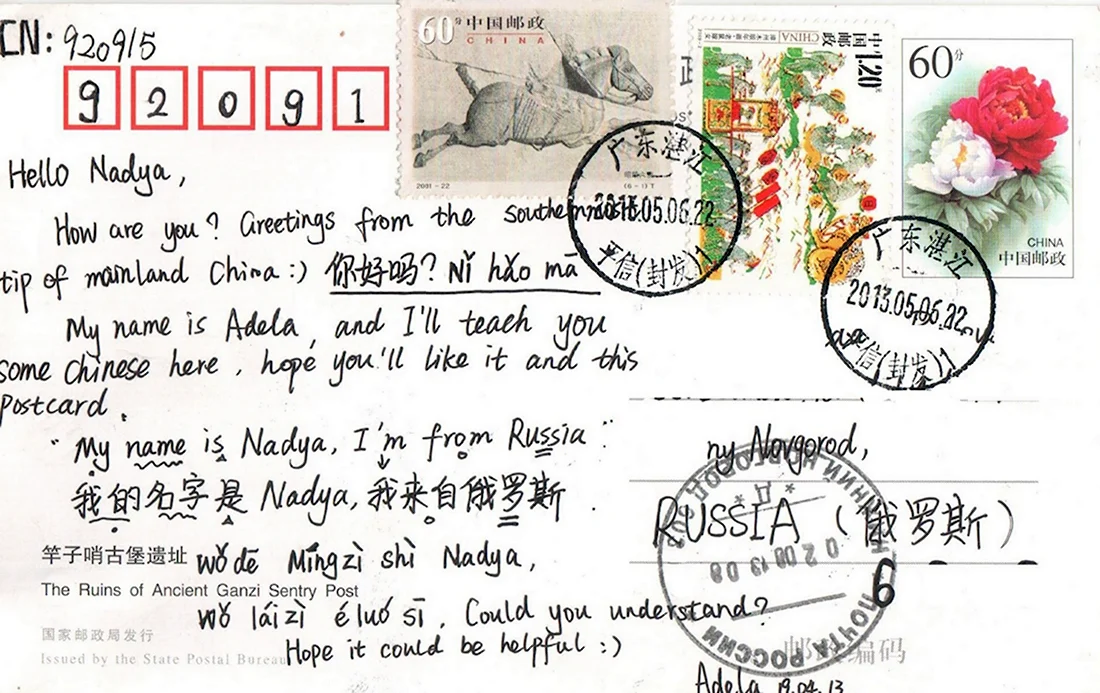 CN: 920915
9 2 0 9 1
60分 中国邮政
CHINA
2001-22 (6-1)T
中国邮政 CHINA
1.20元
60分
CHINA
中国邮政
广东湛江
2013.05.06.22
平信(封发)1
广东湛江
2013.05.06.22
平信(封发)1
Hello Nadya,
How are you? Greetings from the southernmost
tip of mainland China:) 你好吗? Nǐ hǎo mā
My name is Adela, and I'll teach you
some chinese here, hope you'll like it and this
postcard.
"My name is Nadya, I'm from Russia"
我的名字是 Nadya, 我来自俄罗斯
wǒ dē Míngzì shì Nadya,
wǒ láizì é luó sī. Could you understand?
Hope it could be helpful :)
Adela 19.04.13
竿子哨古堡遗址
The Ruins of Ancient Ganzi Sentry Post
国家邮政局发行
Issued by the State Postal Bureau
ny Novgorod,
RUSSIA (俄罗斯)
6
ПОЧТА РОССИИ
邮政编码